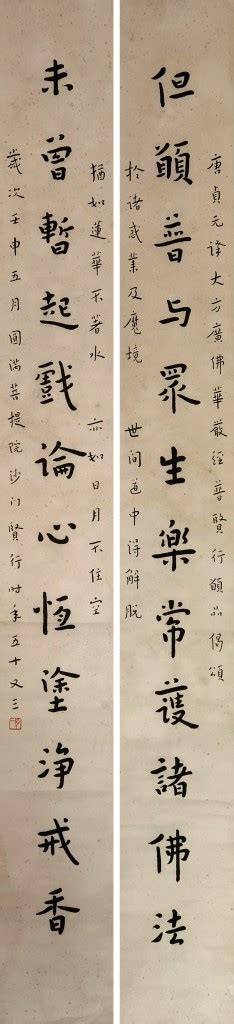 唐貞元译大方廣佛華嚴經普賢行願品偈頌
但願普与眾生樂常護諸佛法
於諸惑業及魔境 世间道中得解脫
猶如蓮華不著水 亦如日月不住空
未曾暫起戲論心恆塗淨戒香
歲次壬申五月圓滿菩提院沙门賢行时年五十又三